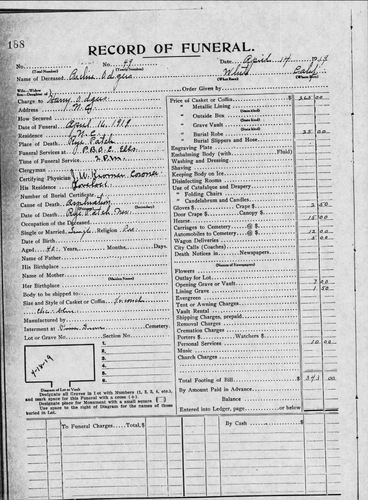 188
RECORD OF FUNERAL.
No. No. 49 Date, April 14 1919
(Total Number) (Yearly Number) White Calif
Name of Deceased Odgers (What Race) (Where Born)
Order Given by
Charge to Harry Odgers
Address N.C.
How Secured
Date of Funeral April 16, 1919
Residence N.C.
Place of Death Rye Patch
Funeral Services at B.P.O.E. Elks
Time of Funeral Service 2 P.M.
Clergyman
Certifying Physician J.W. Coroner
His Residence Lovelock
Number of Burial Certificate
Cause of Death
Date of Death Rye Patch Nev.
Occupation of the Deceased
Single or Married, Single Religion
Date of Birth
Aged 42 Years, Months, Days.
Name of Father
His Birthplace
Name of Mother
Her Birthplace
Body to be shipped to
Size and Style of Casket or Coffin
Manufactured by
Interment at Cemetery.
Lot or Grave No. Section No.
4-18-19
1.
2.
3.
4.
5.
6.
7.
8.
Diagram of Lot or Vault
Designate all Graves in Lot with Numbers (1, 2, 3, 4, etc.), and mark space for this Funeral with a cross (+).
Designate place for Monument with a small square
Use space to the right of Diagram for the names of those buried in Lot.
Price of Casket or Coffin $ 265 00
" Metallic Lining
" Outside Box (State kind)
" Grave Vault (State kind)
" Burial Robe (State kind) 35 00
" Burial Slippers and Hose
Engraving Plate
Embalming Body (with Fluid)
Washing and Dressing
Shaving
Keeping Body on Ice
Disinfecting Rooms
Use of Catafalque and Drapery
" Folding Chairs
" Candelabrum and Candles
Gloves $ Crape $ 2 50
Door Crape $ Canopy $
Hearse 15 00
Carriages to Cemetery @ $
Automobiles to Cemetery @ $ 12 00
Wagon Deliveries 5 00
City Calls (Coaches)
Death Notices in Newspapers
(Names of Newspapers)
Flowers
Outlay for Lot
Opening Grave or Vault 7 00
Lining Grave 1 50
Evergreen
Tent or Awning Charges
Vault Rental
Shipping Charges, prepaid
Removal Charges
Cremation Charges
Porters $ Watchers $
Personal Services 10 00
Music
Church Charges
Total Footing of Bill $ 343 00
By Amount Paid in Advance
Balance
Entered into Ledger, page or below
To Funeral Charges, Total, $ By Cash $